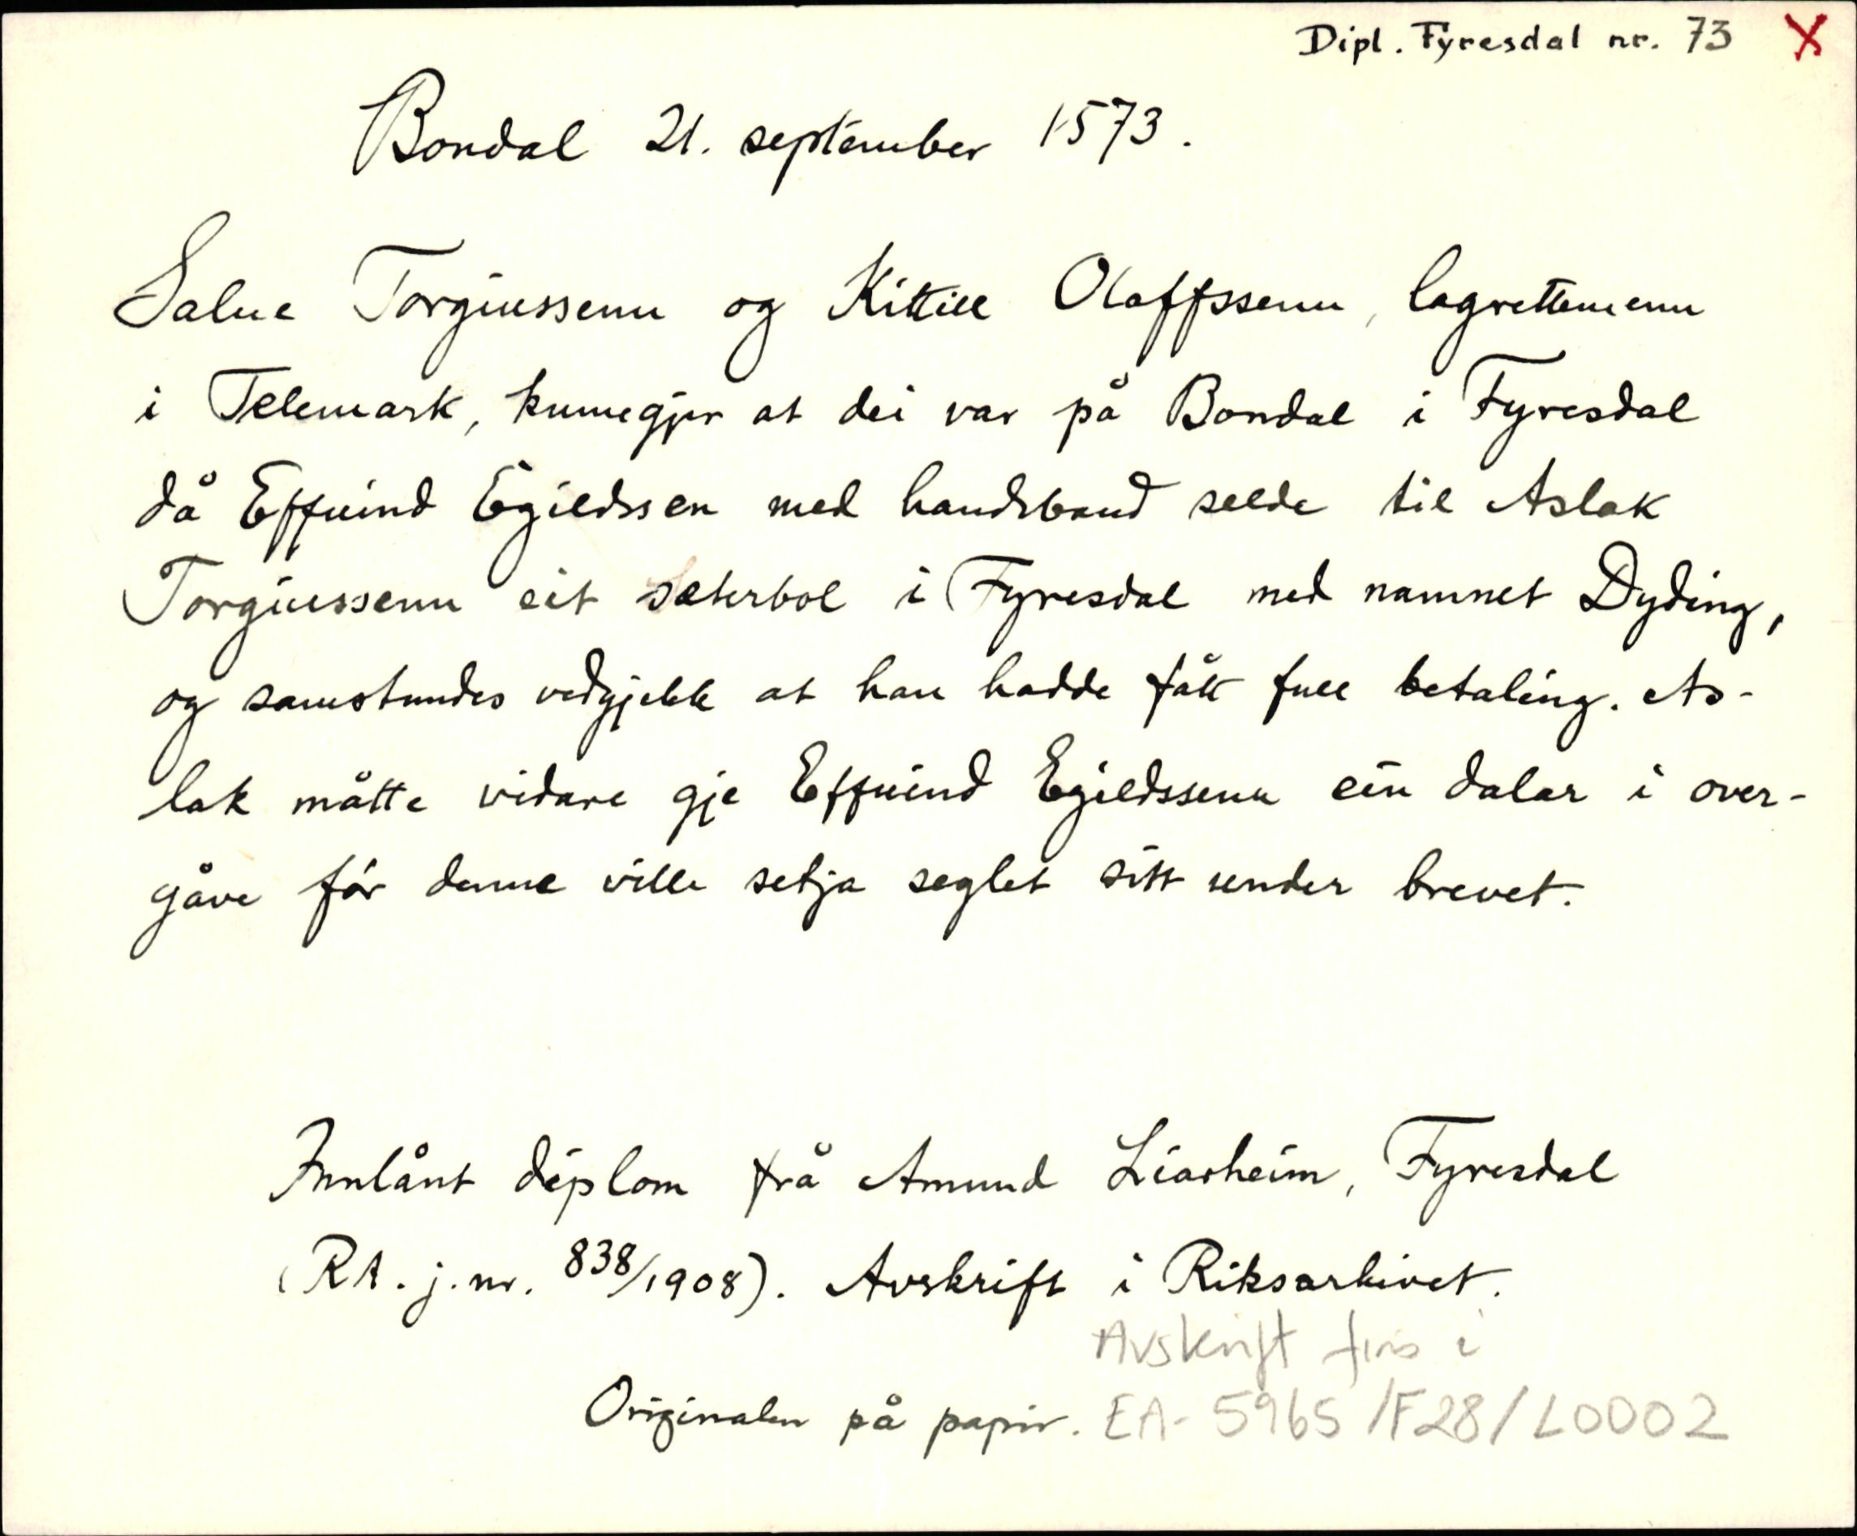 Dipl. Fyresdal nr. 73 X
Bondal 21. september 1573.
Salue Torgiussenn og Kittill Olaffssenn, lagrettemenn
i Telemark, kunngjer at dei var på Bondal i Fyresdal
då Effuind Egildssen med handsband selde til Aslak
Torgiussenn eit sæterbol i Fyresdal med namnet Dyding,
og samstundes vedgjekk at han hadde fått full betaling. As-
lak måtte vidare gje Effuind Egildssenn ein dalar i over-
gåve før denne ville setja seglet sitt under brevet.
Innlånt diplom frå Amund Liarheim, Fyresdal
(RA. j.nr. 838/1908). Avskrift i Riksarkivet.
Avskrift fins i
Originalen på papir. EA-5965/F28/L0002